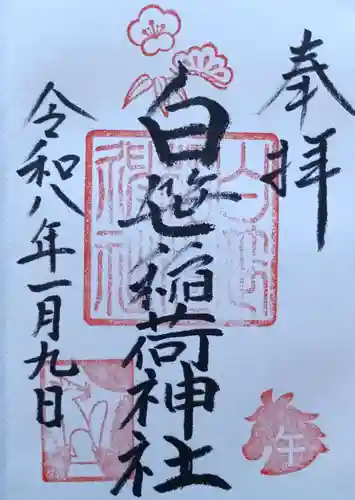 奉拝
白笹稲荷神社
令和八年一月九日
午